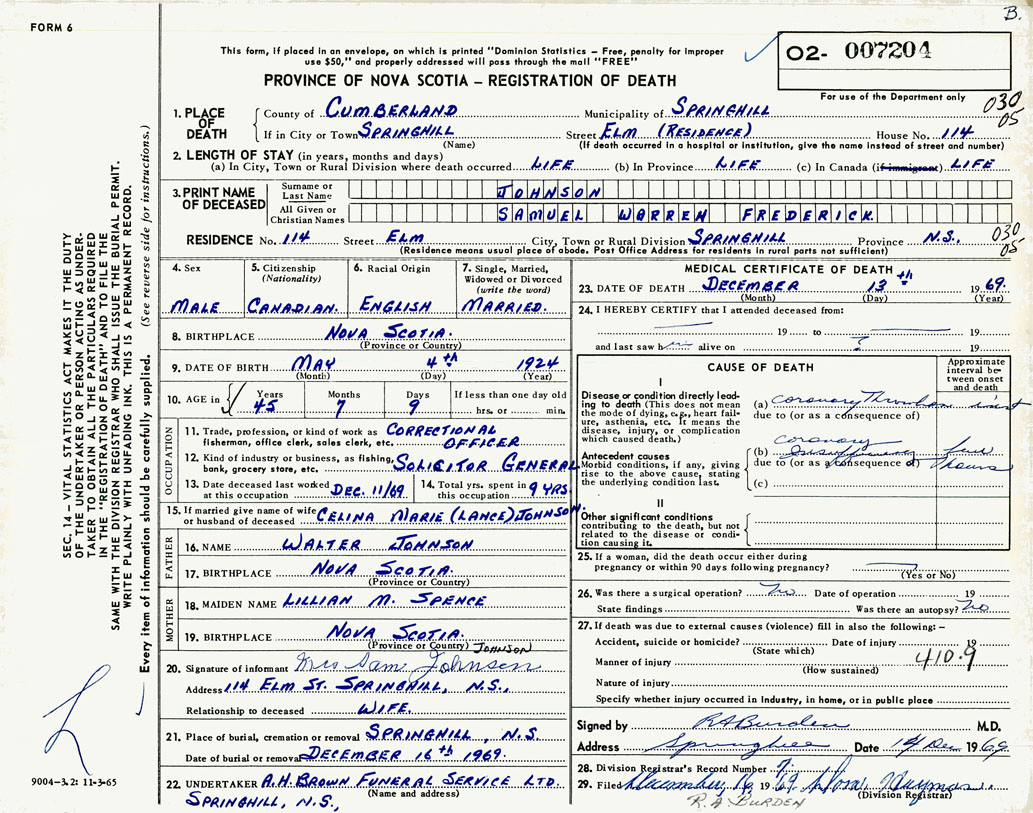 B.
FORM 6
This form, if placed in an envelope, on which is printed "Dominion Statistics – Free, penalty for improper
use $50," and properly addressed will pass through the mail "FREE"
02- 007204
PROVINCE OF NOVA SCOTIA – REGISTRATION OF DEATH
For use of the Department only
030
05
1. PLACE OF DEATH County of CUMBERLAND Municipality of SPRINGHILL
If in City or Town SPRINGHILL Street ELM (RESIDENCE) House No. 114
(Name) (If death occurred in a hospital or institution, give the name instead of street and number)
2. LENGTH OF STAY (in years, months and days)
(a) In City, Town or Rural Division where death occurred LIFE (b) In Province LIFE (c) In Canada (if immigrant) LIFE
3. PRINT NAME OF DECEASED
Surname or Last Name JOHNSON
All Given or Christian Names SAMUEL WARREN FREDERICK
RESIDENCE No. 114 Street ELM City, Town or Rural Division SPRINGHILL Province N.S., 030
05
(Residence means usual place of abode. Post Office Address for residents in rural parts not sufficient)
4. Sex MALE
5. Citizenship (Nationality) CANADIAN.
6. Racial Origin ENGLISH
7. Single, Married, Widowed or Divorced (write the word) MARRIED.
8. BIRTHPLACE NOVA SCOTIA.
(Province or Country)
9. DATE OF BIRTH MAY 4th 1924
(Month) (Day) (Year)
10. AGE in Years Months Days If less than one day old
45 7 9 hrs. or min.
OCCUPATION
11. Trade, profession, or kind of work as fisherman, office clerk, sales clerk, etc. CORRECTIONAL OFFICER
12. Kind of industry or business, as fishing, bank, grocery store, etc. SOLICITOR GENERAL
13. Date deceased last worked at this occupation DEC. 11/69
14. Total yrs. spent in this occupation 9 YRS.
15. If married give name of wife or husband of deceased CELINA MARIE (LANCE) JOHNSON.
FATHER
16. NAME WALTER JOHNSON
17. BIRTHPLACE NOVA SCOTIA.
(Province or Country)
MOTHER
18. MAIDEN NAME LILLIAN M. SPENCE
19. BIRTHPLACE NOVA SCOTIA.
(Province or Country) JOHNSON
20. Signature of informant Mrs Sam Johnson
Address 114 ELM ST. SPRINGHILL, N.S.,
Relationship to deceased WIFE.
21. Place of burial, cremation or removal SPRINGHILL, N.S.
Date of burial or removal DECEMBER 16th 1969.
22. UNDERTAKER A.H. BROWN FUNERAL SERVICE LTD.
(Name and address)
SPRINGHILL, N.S.,
MEDICAL CERTIFICATE OF DEATH
23. DATE OF DEATH DECEMBER 13th 1969.
(Month) (Day) (Year)
24. I HEREBY CERTIFY that I attended deceased from:
19 to 19
and last saw h alive on 19
CAUSE OF DEATH
Approximate interval between onset and death
I
Disease or condition directly leading to death (This does not mean the mode of dying, e.g., heart failure, asthenia, etc. It means the disease, injury, or complication which caused death.)
(a) Coronary
due to (or as a consequence of)
Antecedent causes
Morbid conditions, if any, giving rise to the above cause, stating the underlying condition last.
(b) Coronary Insufficiency few hours
due to (or as a consequence of)
(c)
II
Other significant conditions contributing to the death, but not related to the disease or condition causing it.
25. If a woman, did the death occur either during pregnancy or within 90 days following pregnancy?
(Yes or No)
26. Was there a surgical operation? No Date of operation 19
State findings Was there an autopsy? No
27. If death was due to external causes (violence) fill in also the following:–
Accident, suicide or homicide? Date of injury 19
(State which)
410.9
Manner of injury
(How sustained)
Nature of injury
Specify whether injury occurred in industry, in home, or in public place
Signed by RABurden M.D.
Address Springhill Date 14 Dec 1969
28. Division Registrar's Record Number 7.
29. Filed December, 16 1969
(Division Registrar)
R.A. BURDEN
SEC. 14 – VITAL STATISTICS ACT MAKES IT THE DUTY
OF THE UNDERTAKER OR PERSON ACTING AS UNDER-
TAKER TO OBTAIN ALL THE PARTICULARS REQUIRED
IN THE "REGISTRATION OF DEATH" AND TO FILE THE
SAME WITH THE DIVISION REGISTRAR WHO SHALL ISSUE THE BURIAL PERMIT.
WRITE PLAINLY WITH UNFADING INK. THIS IS A PERMANENT RECORD.
Every item of information should be carefully supplied. (See reverse side for instructions.)
9004–3.2: 11-3-65